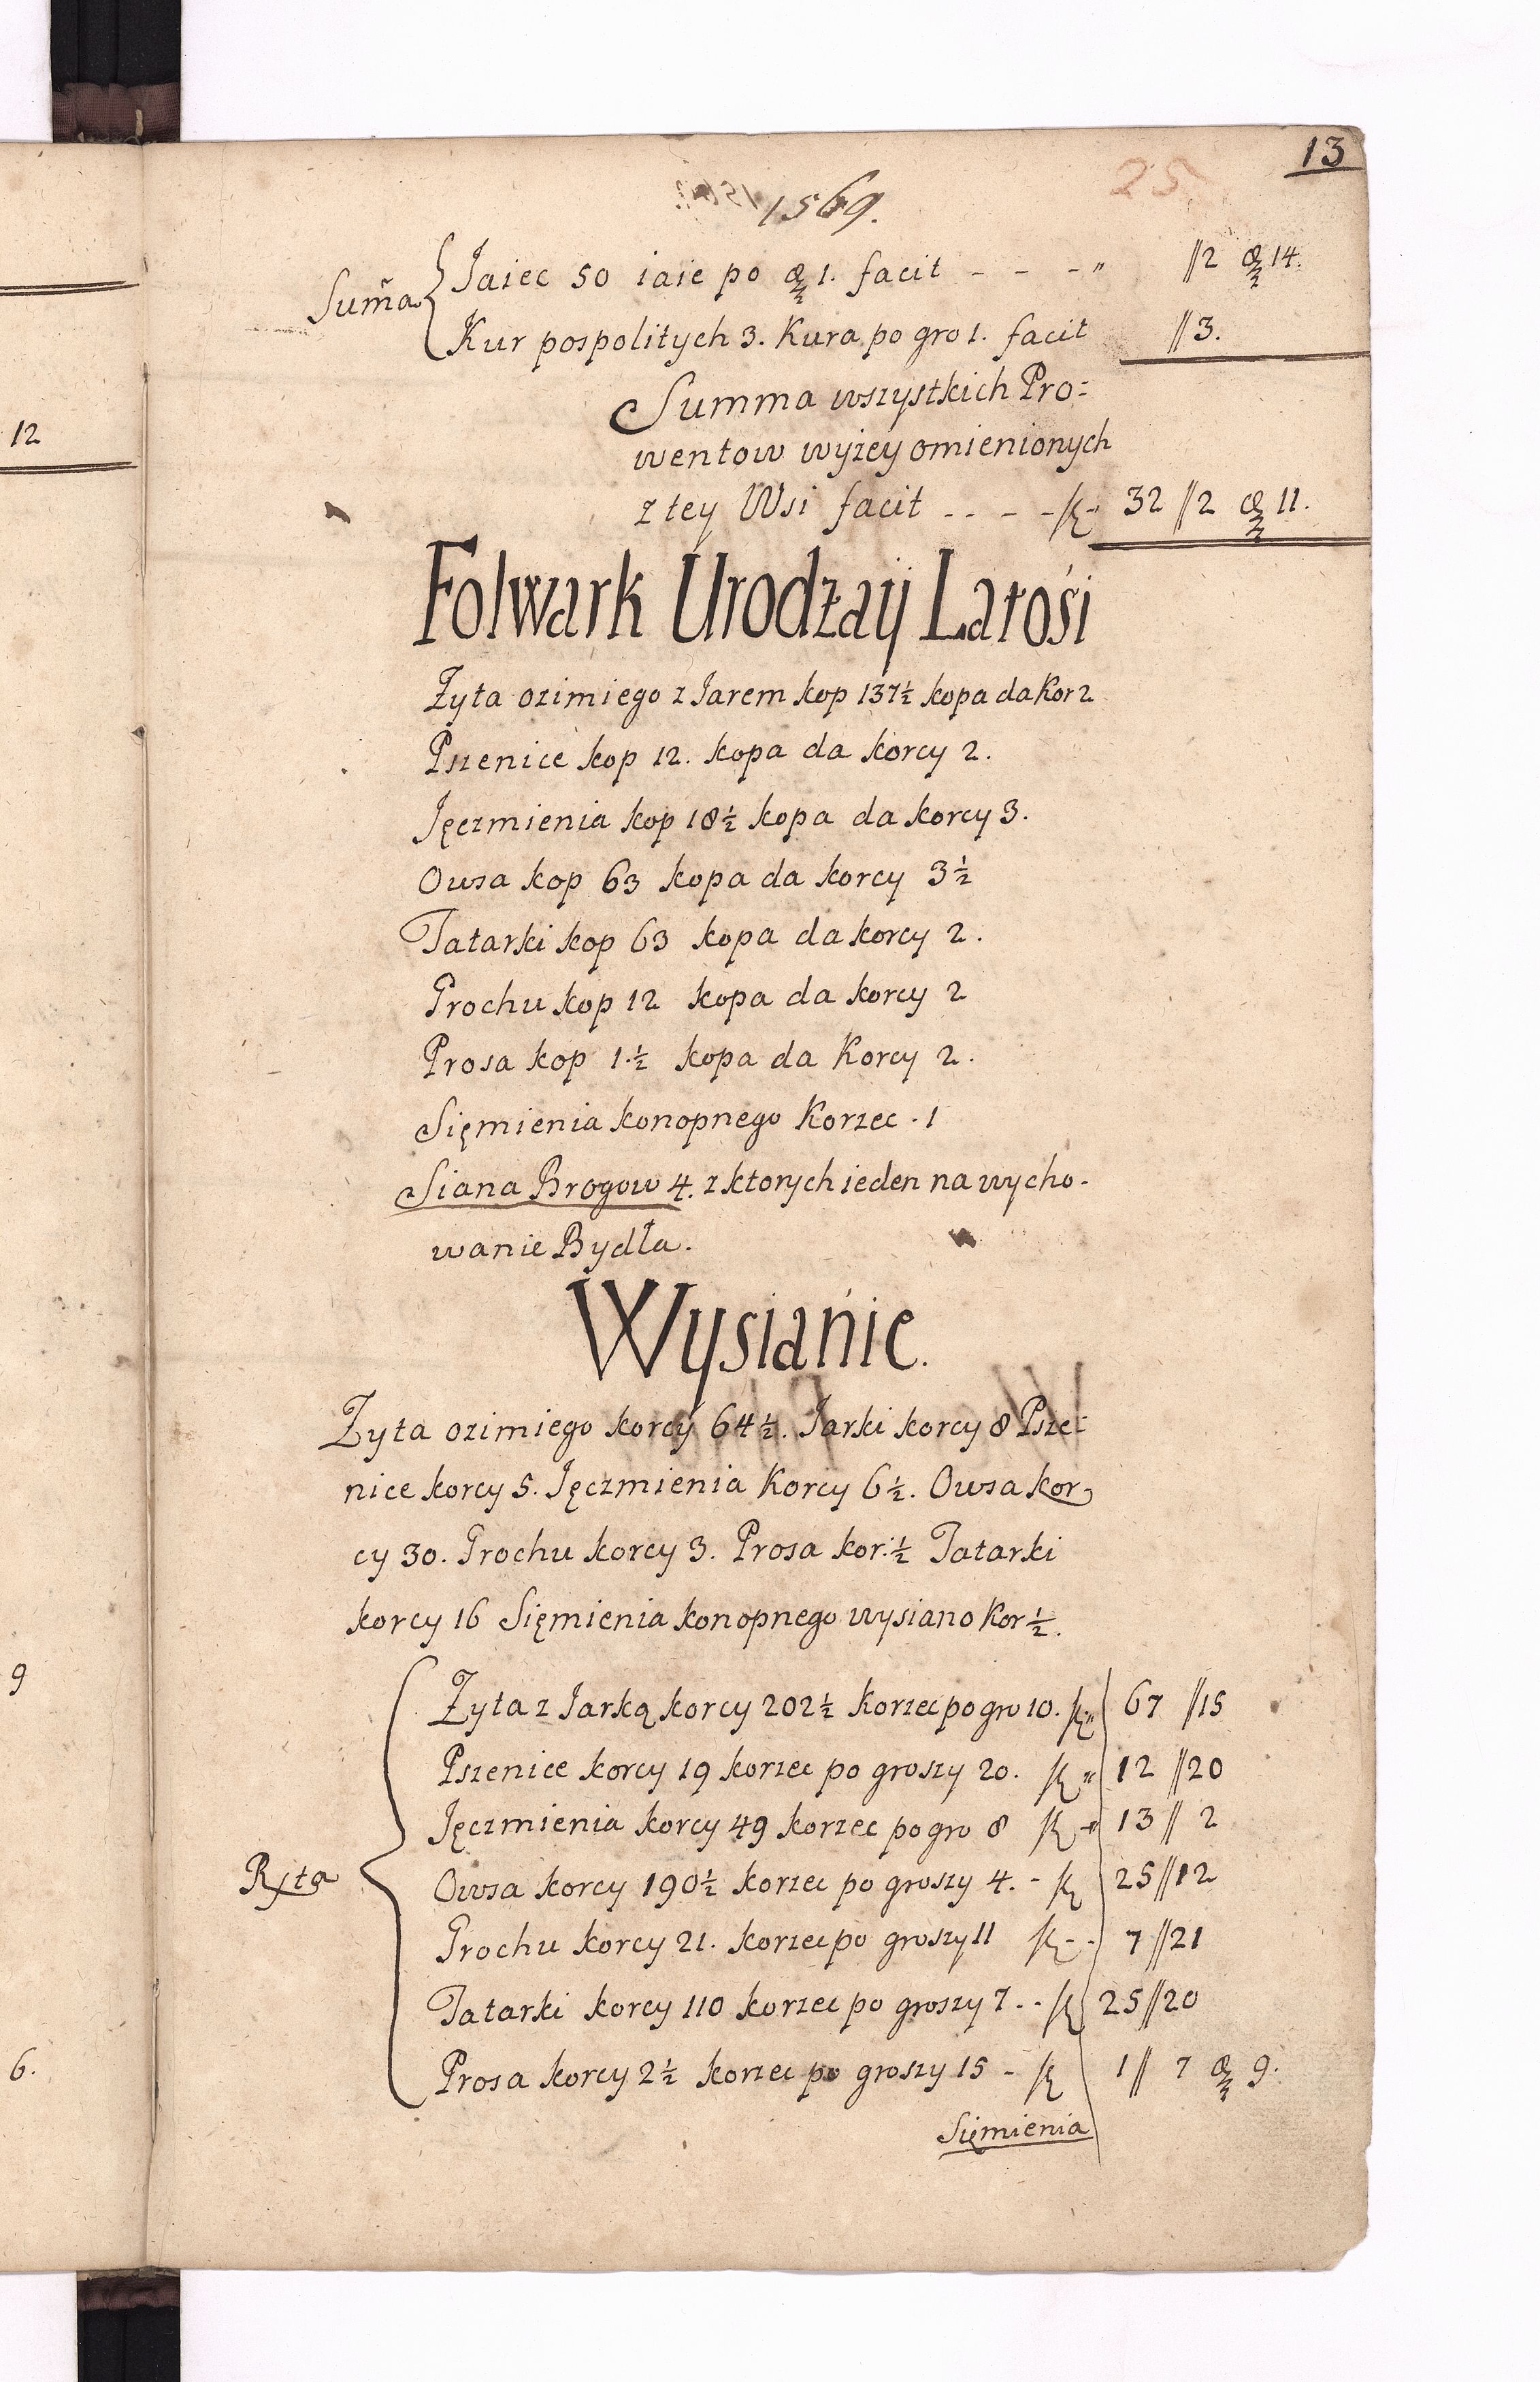 13
25
1569.
Sum̃a
Jaiec 50 iaie po ₰ 1. facit - - - " //2 ₰ 14.
Kur pospolitych 3. Kura po gro 1. facit //3.
Summa wszystkich Pro=
wentow wyżey omienionych
z tey Wsi facit - - - - 32 //2 ₰ 11.
Folwark Urodzaij Latośi
Żyta ozimiego z Jarem kop 137½ kopa da Kor 2
Pszenice kop 12. kopa da korcy 2.
Jęczmienia kop 18½ kopa da korcy 3.
Owsa kop 63 kopa da korcy 3½
Tatarki kop 63 kopa da korcy 2.
Grochu kop 12 kopa da korcy 2
Prosa kop 1.½ kopa da Korcy 2.
Sięmienia konopnego Korzec . 1
Siana Brogow 4. z ktorych ieden na wycho-
wanie Bydła.
Wysianie.
Żyta ozimiego korcy 64½. Jarki korcy 8 Psze=
nice korcy 5. Jęczmienia Korcy 6½. Owsa kor
cy 30. Grochu korcy 3. Prosa kor.½ Tatarki
korcy 16 Sięmienia konopnego wysiano Kor ½.
Żyta z Jarką korcy 202½ Korzec po gro 10. 67 //15
Pszenice korcy 19 korzec po groszy 20. 12 //20
Jęczmienia korcy 49 korzec po gro 8 13 // 2
Rxta
Owsa korcy 190½ korzec po groszy 4. - 25 //12
Grochu korcy 21. korzec po groszy 11 - - 7 //21
Tatarki korcy 110 korzec po groszy 7 - - 25 //20
Prosa korcy 2½ korzec po groszy 15 - 1 // 7 ₰ 9.
Sięmienia
12
9
6.